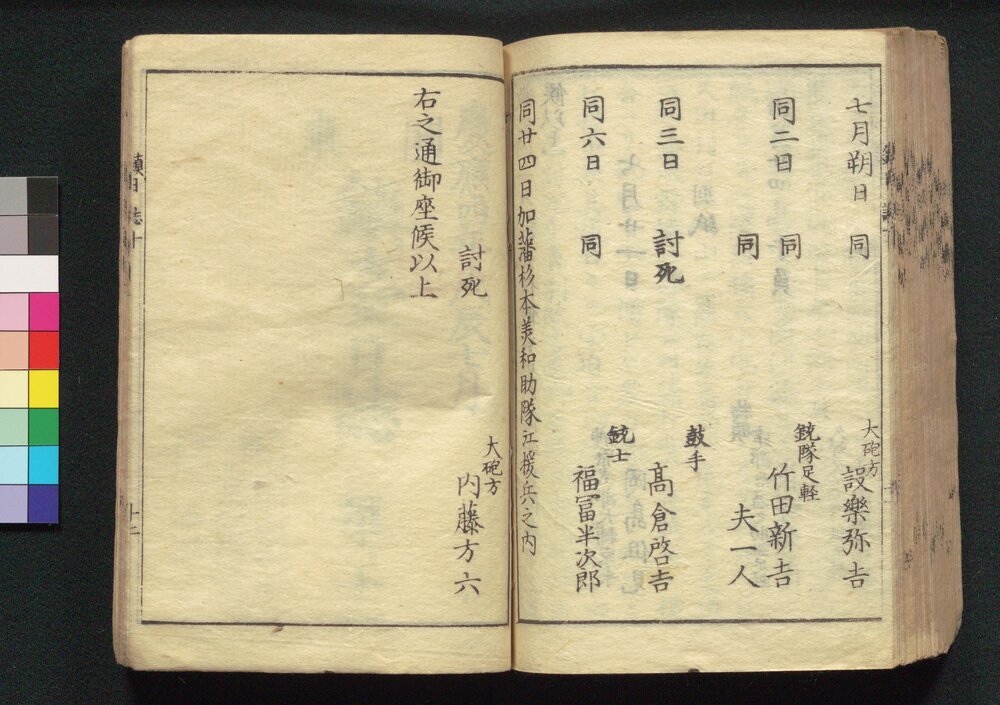 七月朔日 同 大砲方 設樂弥吉
同二日 同 銃隊足軽 竹田新吉
同 夫一人
同三日 討死 鼓手 髙倉啓吉
同六日 同 銃士 福冨半次郎
同廿四日加藩杉本美和助隊江援兵之内
討死 大砲方 内藤方六
右之通御座候以上
鎮日誌十
十二